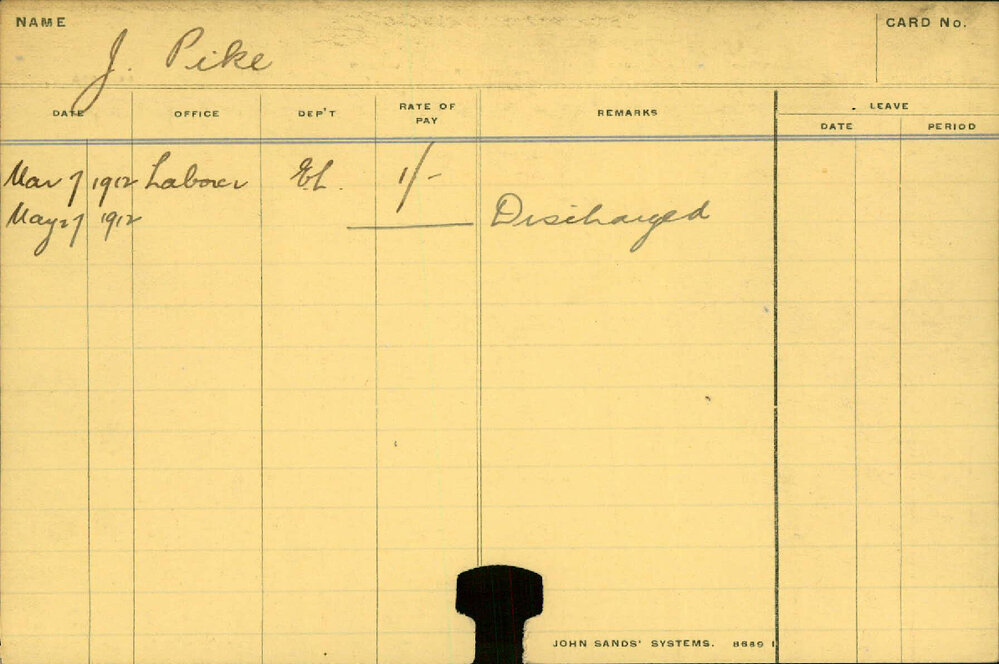 NAME
CARD No.
J. Pike
DATE OFFICE DEP'T RATE OF PAY REMARKS LEAVE
DATE PERIOD
Mar 7 1912 Laborer EL. 1/-
May 27 1912 Discharged
JOHN SANDS' SYSTEMS. 8689 1